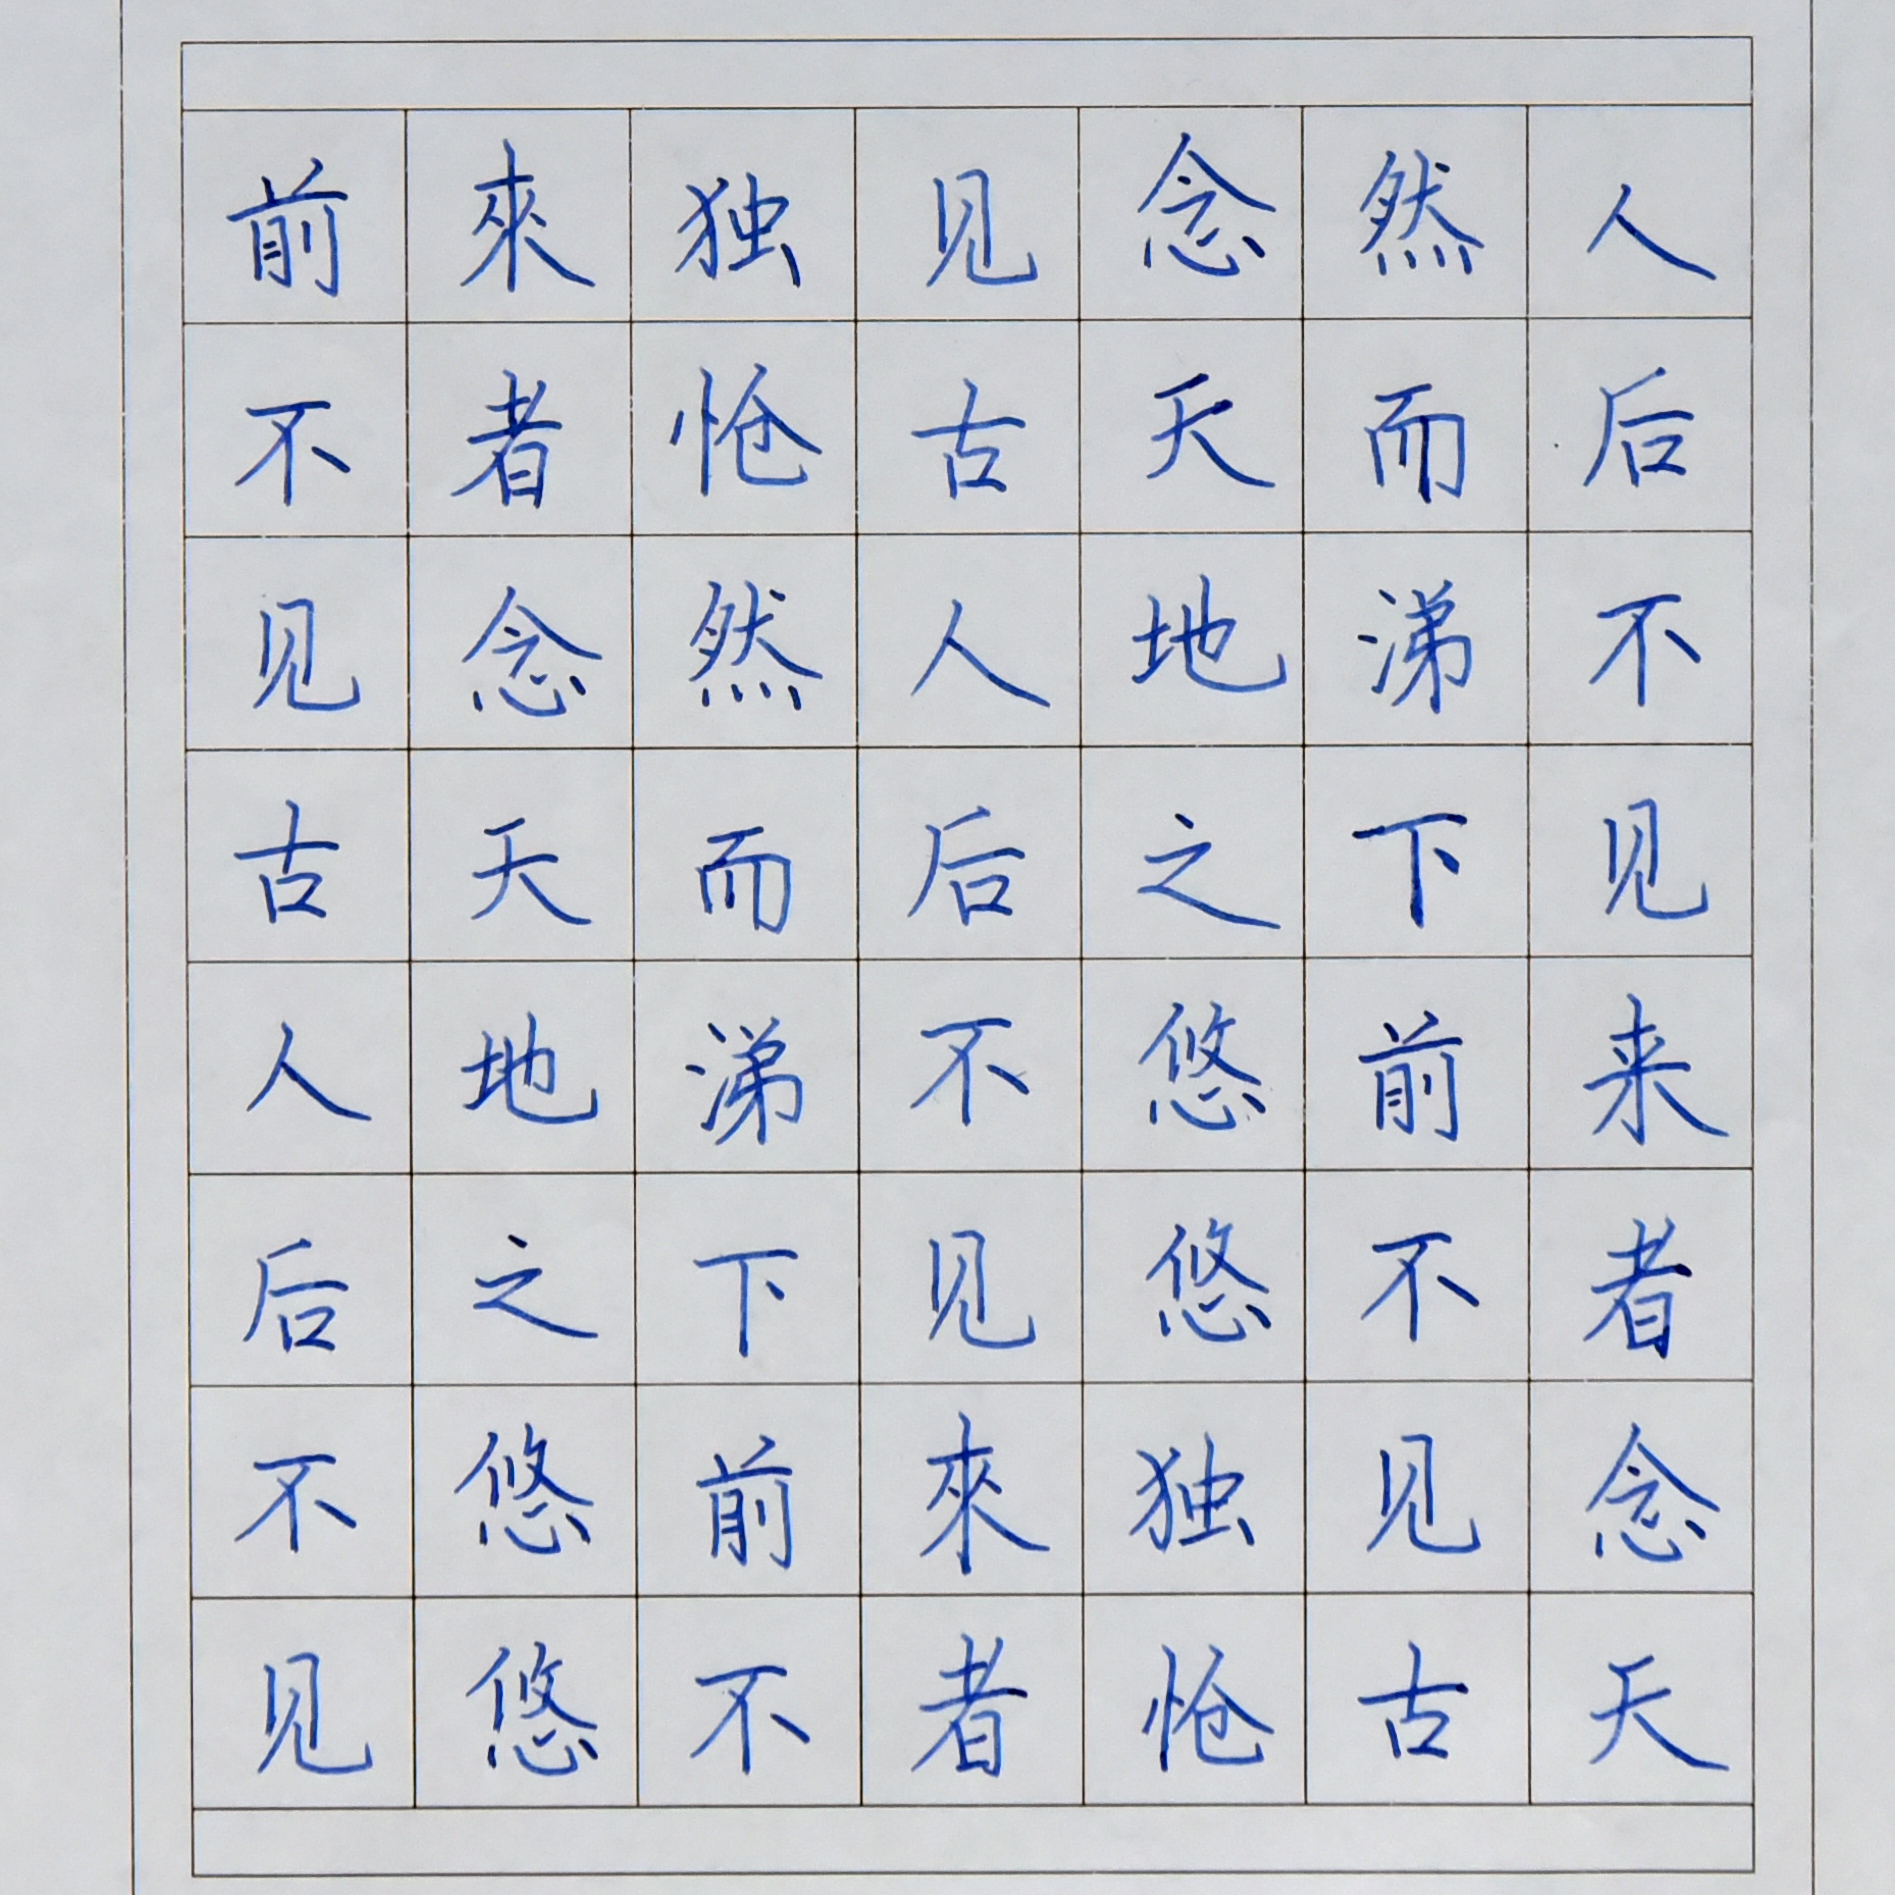 前不见古人后不见
來者念天地之悠悠
独怆然而涕下前不
见古人后不见來者
念天地之悠悠独怆
然而涕下前不见古
人后不见来者念天